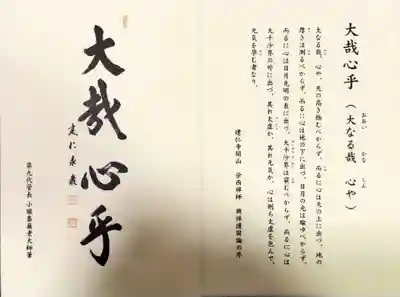 大哉心乎(大なる哉 心や)
大なる哉、心や、天の高き極むべからず、而るに心は天の上に出づ、地の
厚きは測るべからず、而るに心は地の下に出づ、日月の光は喩ゆべからず、
而るに心は日月光明の表に出づ、大千沙界は窮むべからず、而るに心は
大千沙界の外に出づ、其れ太虚か、其れ元気か、心は則ち太虚を包んで、
元気を孕む者なり。
建仁寺開山 栄西禅師 興禅護国論の序
大哉心乎
建仁泰巌
第九代管長 小堀泰巌老大師筆